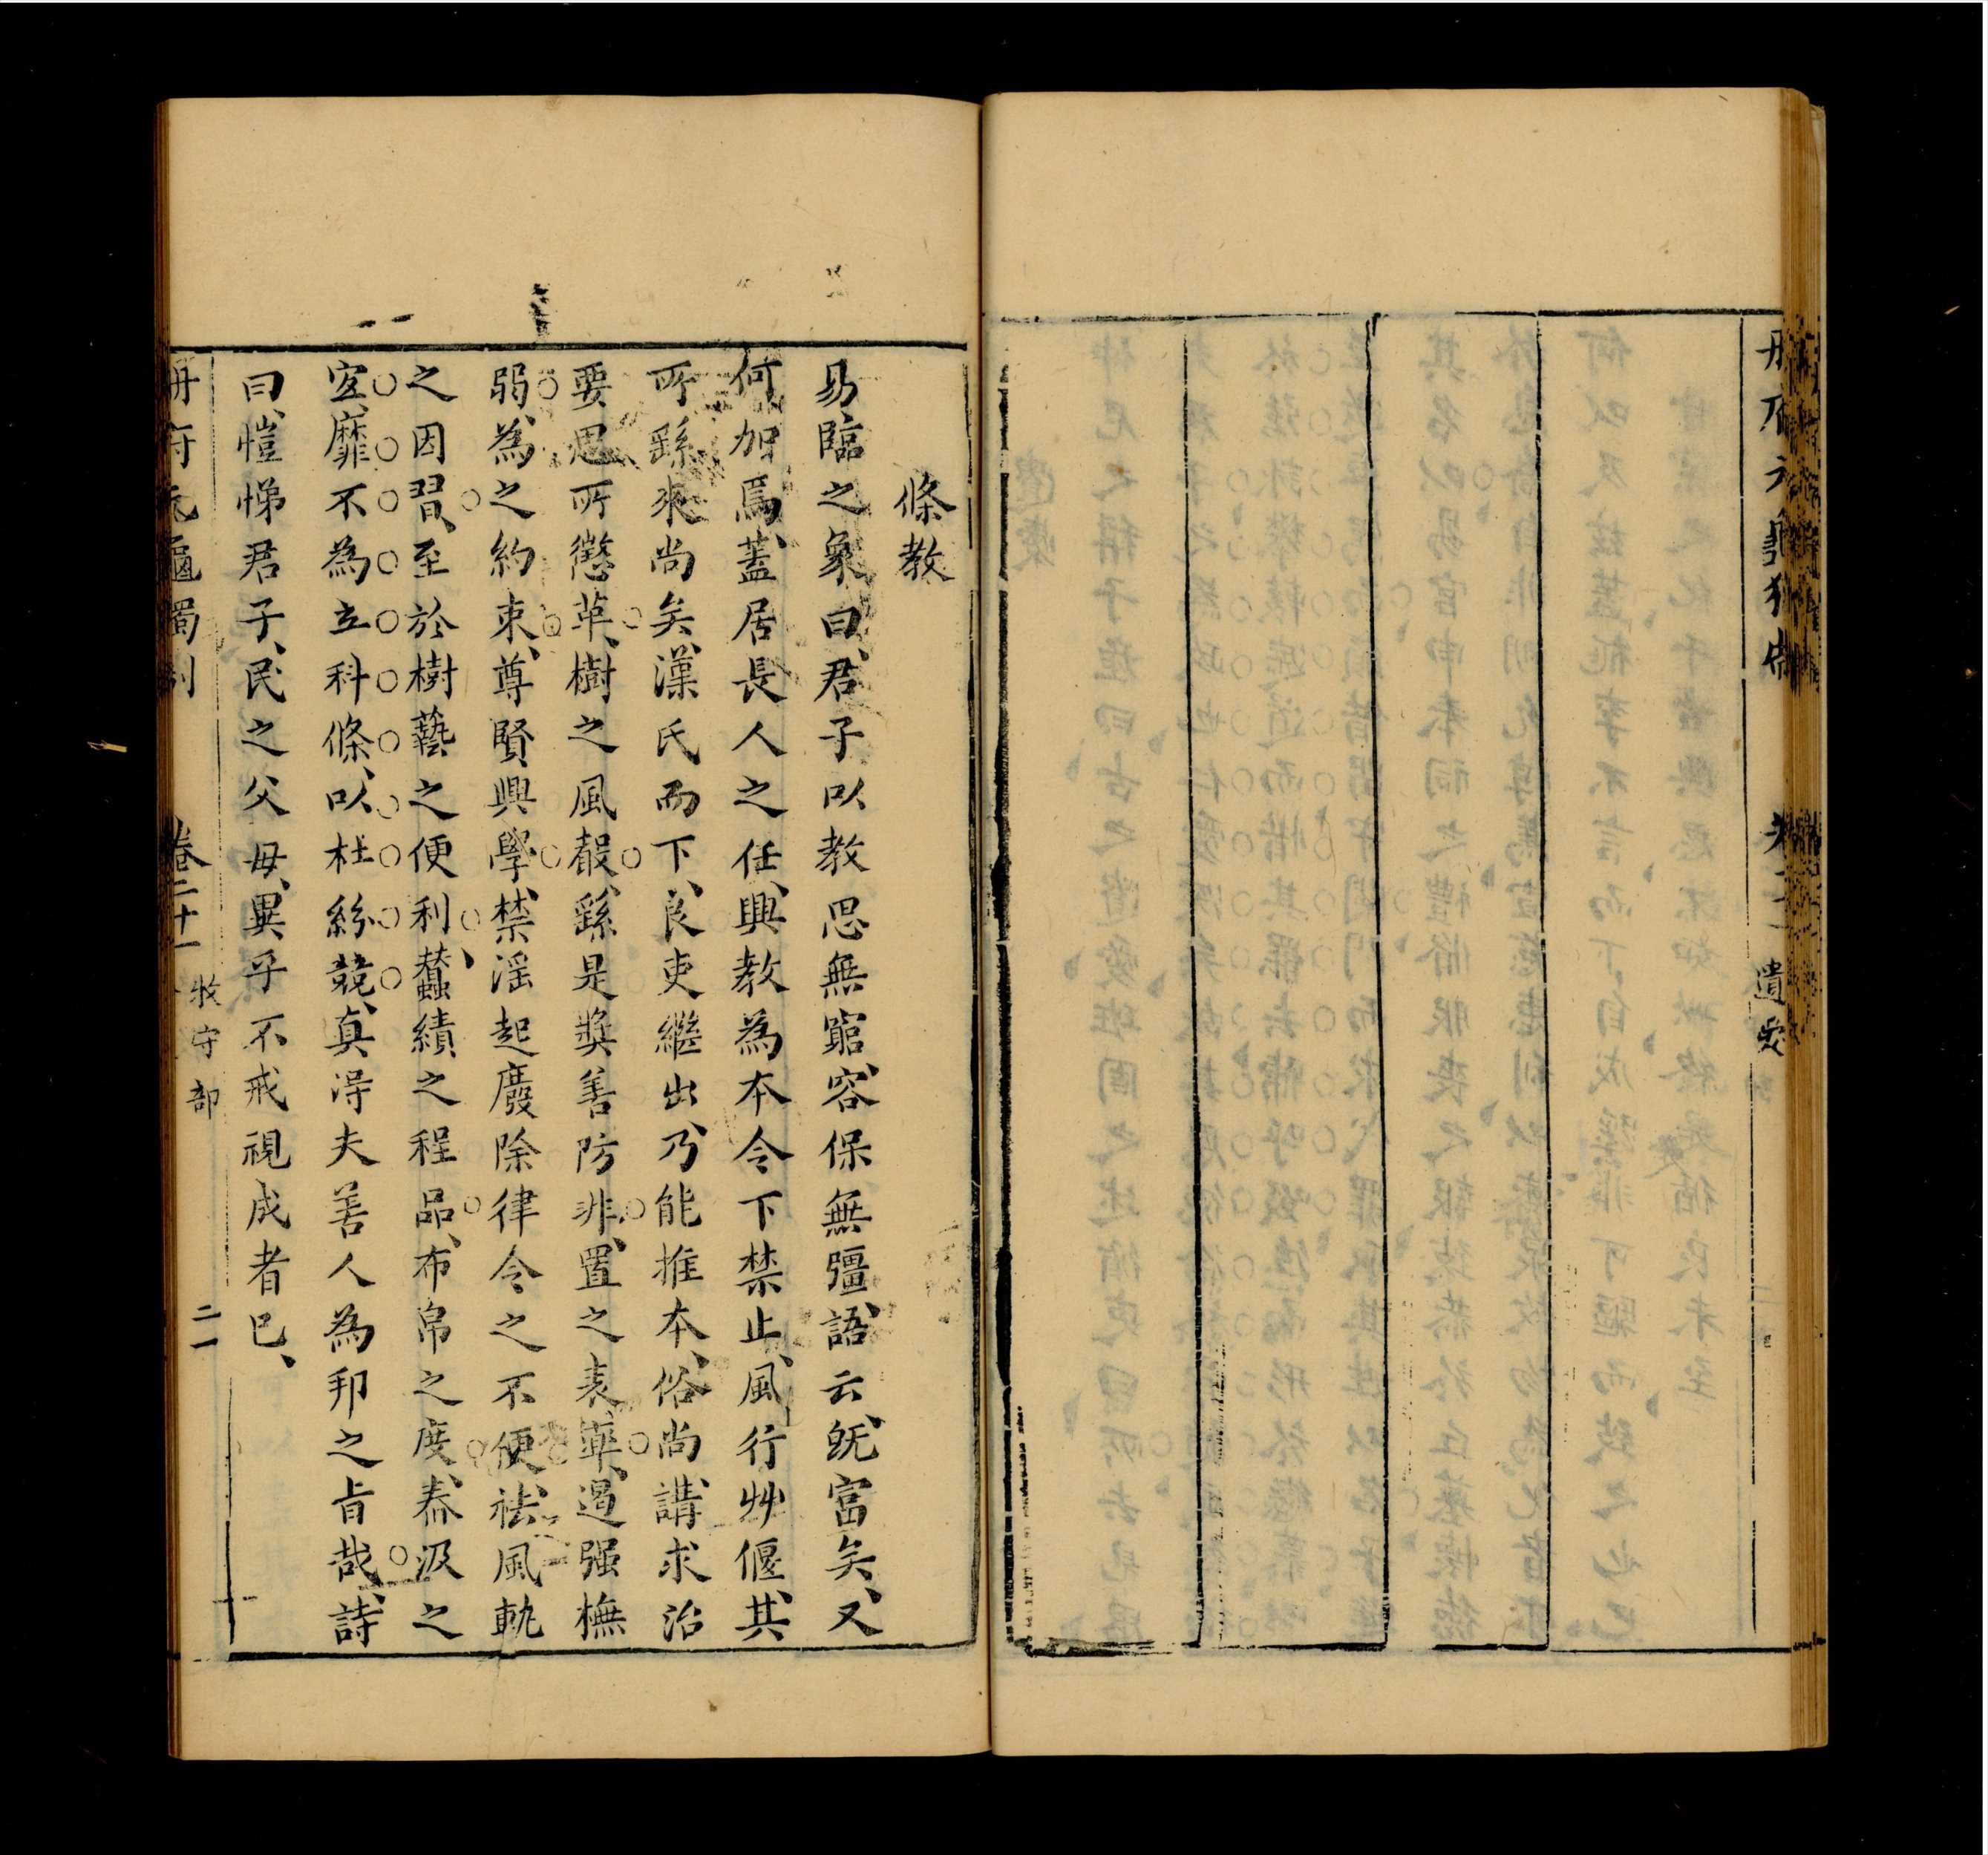 遺愛
條教
易臨之象曰、君子以教思無窮、容保無疆、語云、旣富矣、又
何加焉、蓋居長人之任、興教為本、令下禁止、風行艸偃、其
所繇來尚矣、漢氏而下、良吏繼出、乃能推本、俗尚、講求治
要、思所懲革、樹之風聲、繇是奬善防非、置之表率、遏强撫
弱、為之約束、尊賢興學、禁淫起廢、除律令之不便、祛風軌
之因習、至於樹藝之便利、蠶績之程品、布帛之度、桼汲之
宐、靡不為立科條、以杜紛競、真得夫善人為邦之旨哉、詩
曰、愷悌君子、民之父母、異乎不戒視成者已、
冊府元龜獨制
卷二十一
牧守部
二一